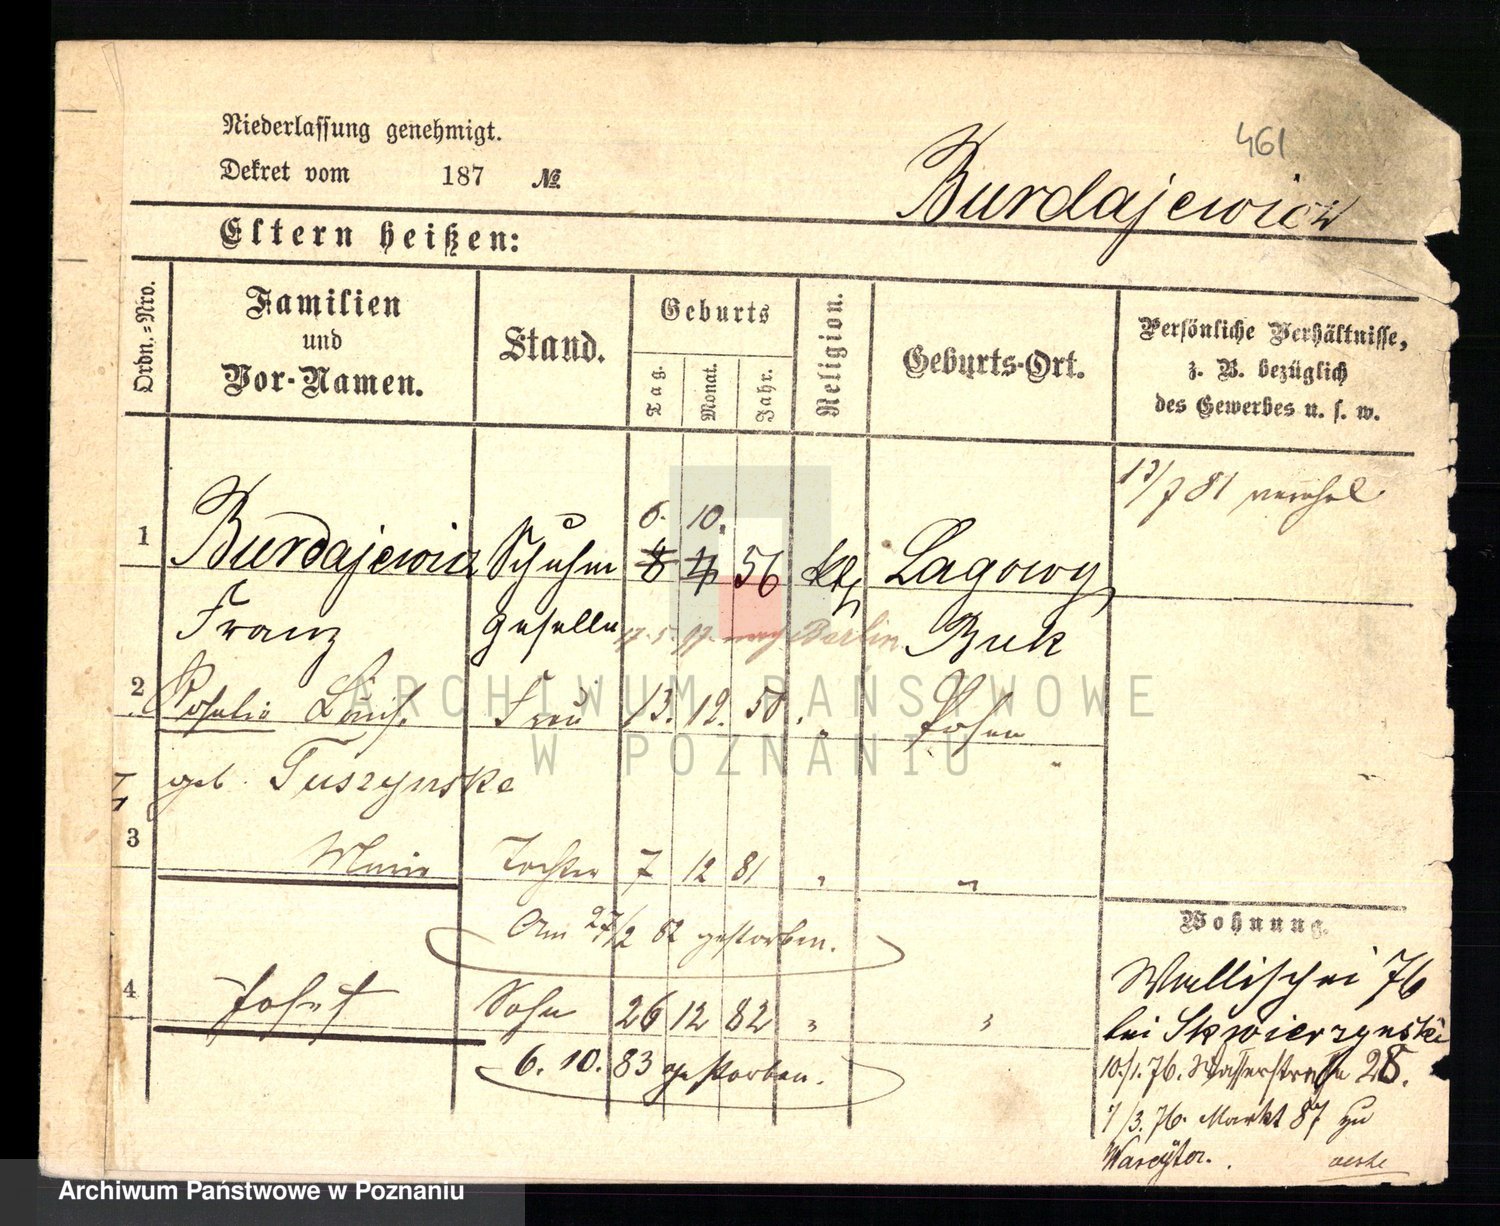 461
Niederlassung genehmigt.
Dekret vom 187 №
Burdajewicz
Eltern heißen:
Ordn.-Nro.
Familien
und
Vor-Namen.
Stand.
Geburts
Tag.
Monat.
Jahr.
Religion.
Geburts-Ort.
Persönliche Verhältnisse,
z. B. bezüglich
des Gewerbes u. s. w.
13/7 81
6. 10.
1 Burdajewicz Schuhm 8 4 56 kth Lagowy
Franz Geselle 17. 5. 97. nach Berlin Buk
2 Rosalie Frau 13. 12. 58. " Posen
geb. Tuszynska
3 Marie Tochter 7 12 81 " "
Am 27/2 82 gestorben.
Wohnung.
4 Josef Sohn 26 12 82 " "
6. 10. 83 gestorben.
Wallischei 76
bei Skwierzynski
10./1. 76. Wasserstraße 28.
1/3. 76. Markt 87 zu